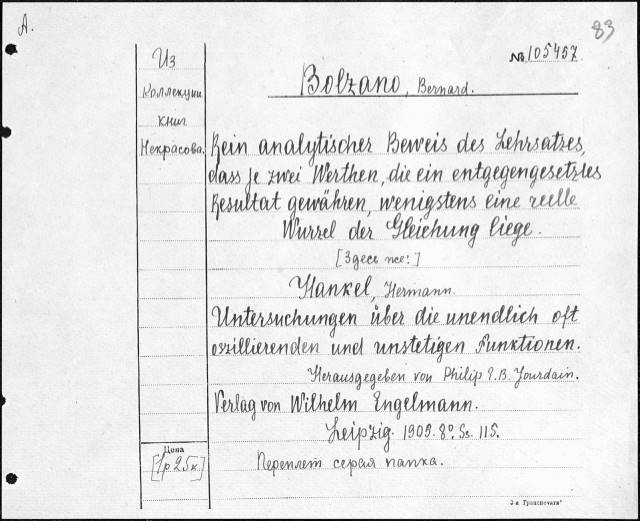 А.
83
№ 105457.
Из
Коллекции
книг
Некрасова.
Bolzano, Bernard.
Rein analytischer Beweis des Lehrsatzes,
dass je zwei Werthen, die ein entgegengesetztes
Resultat gewähren, wenigstens eine reelle
Wurzel der Gleichung liege.
[Здесь же:]
Hankel, Hermann.
Untersuchungen über die unendlich oft
oszillierenden und unstetigen Funktionen.
Herausgegeben von Philip E. B. Jourdain.
Verlag von Wilhelm Engelmann.
Leipzig. 1905. 8º. Ss. 115.
Цена
[1 р 25 к.]
Переплет серая папка.
3-я Транспечати"